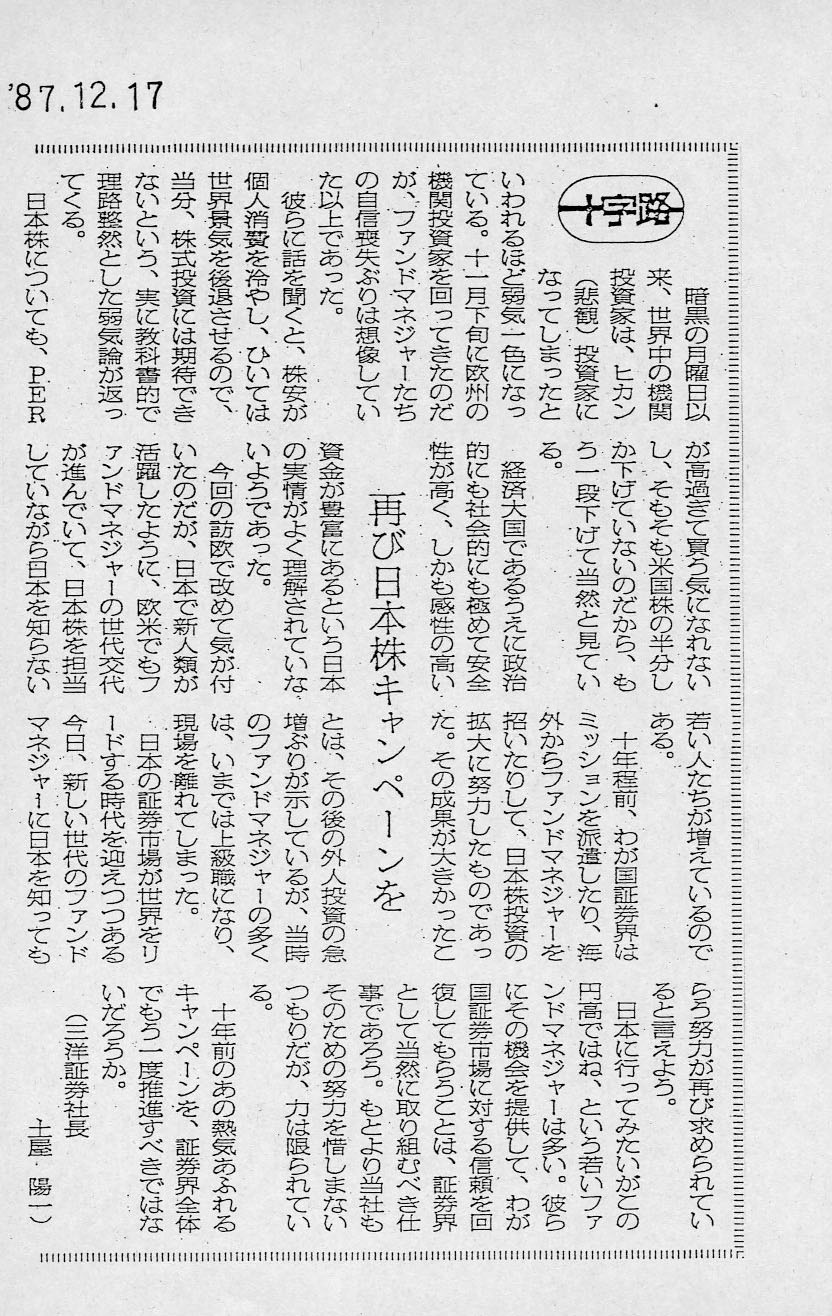 '87.12.17
十字路
再び日本株キャンペーンを
暗黒の月曜日以
来、世界中の機関
投資家は、ヒカン
（悲観）投資家に
なってしまったと
いわれるほど弱気一色になっ
ている。十一月下旬に欧州の
機関投資家を回ってきたのだ
が、ファンドマネジャーたち
の自信喪失ぶりは想像してい
た以上であった。
彼らに話を聞くと、株安が
個人消費を冷やし、ひいては
世界景気を後退させるので、
当分、株式投資には期待でき
ないという、実に教科書的で
理路整然とした弱気論が返っ
てくる。
日本株についても、PER
が高過ぎて買う気になれない
し、そもそも米国株の半分し
か下げていないのだから、も
う一段下げて当然と見てい
る。
経済大国であるうえに政治
的にも社会的にも極めて安全
性が高く、しかも感性の高い
資金が豊富にあるという日本
の実情がよく理解されていな
いようであった。
今回の訪欧で改めて気が付
いたのだが、日本で新人類が
活躍したように、欧米でもフ
ァンドマネジャーの世代交代
が進んでいて、日本株を担当
していながら日本を知らない
若い人たちが増えているので
ある。
十年程前、わが国証券界は
ミッションを派遣したり、海
外からファンドマネジャーを
招いたりして、日本株投資の
拡大に努力したものであっ
た。その成果が大きかったこ
とは、その後の外人投資の急
増ぶりが示しているが、当時
のファンドマネジャーの多く
は、いまでは上級職になり、
現場を離れてしまった。
日本の証券市場が世界をリ
ードする時代を迎えつつある
今日、新しい世代のファンド
マネジャーに日本を知っても
らう努力が再び求められてい
ると言えよう。
日本に行ってみたいがこの
円高ではね、という若いファ
ンドマネジャーは多い。彼ら
にその機会を提供して、わが
国証券市場に対する信頼を回
復してもらうことは、証券界
として当然に取り組むべき仕
事であろう。もとより当社も
そのための努力を惜しまない
つもりだが、力は限られてい
る。
十年前のあの熱気あふれる
キャンペーンを、証券界全体
でもう一度推進すべきではな
いだろうか。
（三洋証券社長
土屋 陽一）